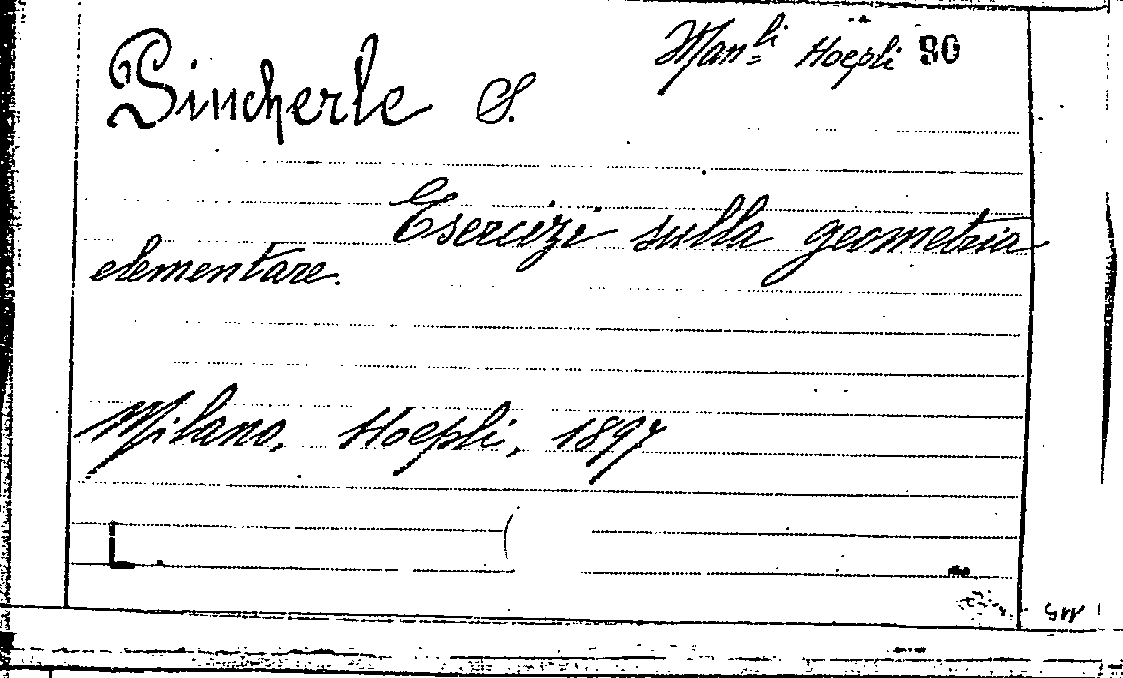 Pincherle S.
Man.li Hoepli 90
Esercizi sulla geometria
elementare.
Milano, Hoepli, 1897